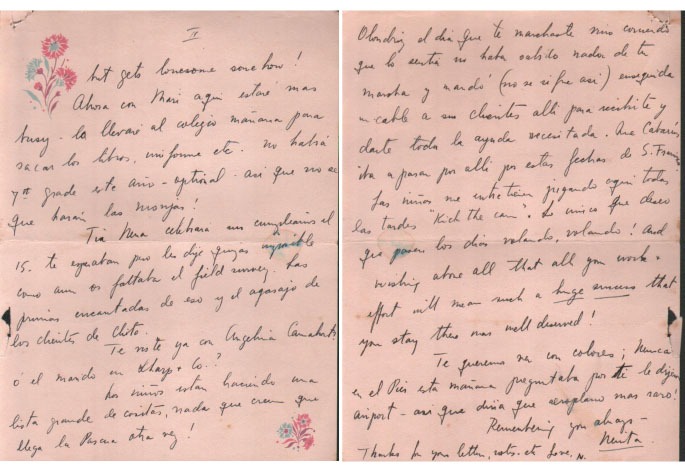 II
but gets lonesome somehow!
Ahora con Mari aquí estaré mas
busy - la llevaré al colegio mañana para
sacar los libros, uniforme etc. no habrá
7th grade este año - optional. así que no se
que harán las monjas!
Tia Nena celebrará su cumpleaños el
15. te esperaban pero les dije quizas imposible
como aun os faltaba el field survey. Las
primas encantadas de eso y el agasajo de
los clientes de
Te viste ya con Angelina
ó el marido en Sharp & Co.?
Los niños estan haciendo una
lista grande de cositas, nada que creen que
llega la Pascua otra vez!
Olondriz el dia que te marchaste vino corriendo
que lo sentia no haba sabido nada de tu
marcha y mandó (no se si fue asi) enseguida
un cable a sus clientes alli para recibirte y
darte toda la ayuda necesitada. Que
iba a pasar por alli por estas fechas de S. Fran
Los niños me entretienen jugando aqui todas
las tardes "Kick the can". Lo unico que deseo
que pasen los dias volando, volando! And
wishing above all that all your work &
effort will mean such a huge success that
your stay there was well deserved!
Te queremos ver con colores; Nunca
en el Pier esta mañana preguntaba por ti le dijeron
airport - asi que diria que aeroplano mas raro!
Remembering you always -
Nenita
Thanks for your letter, etc. Love, N.